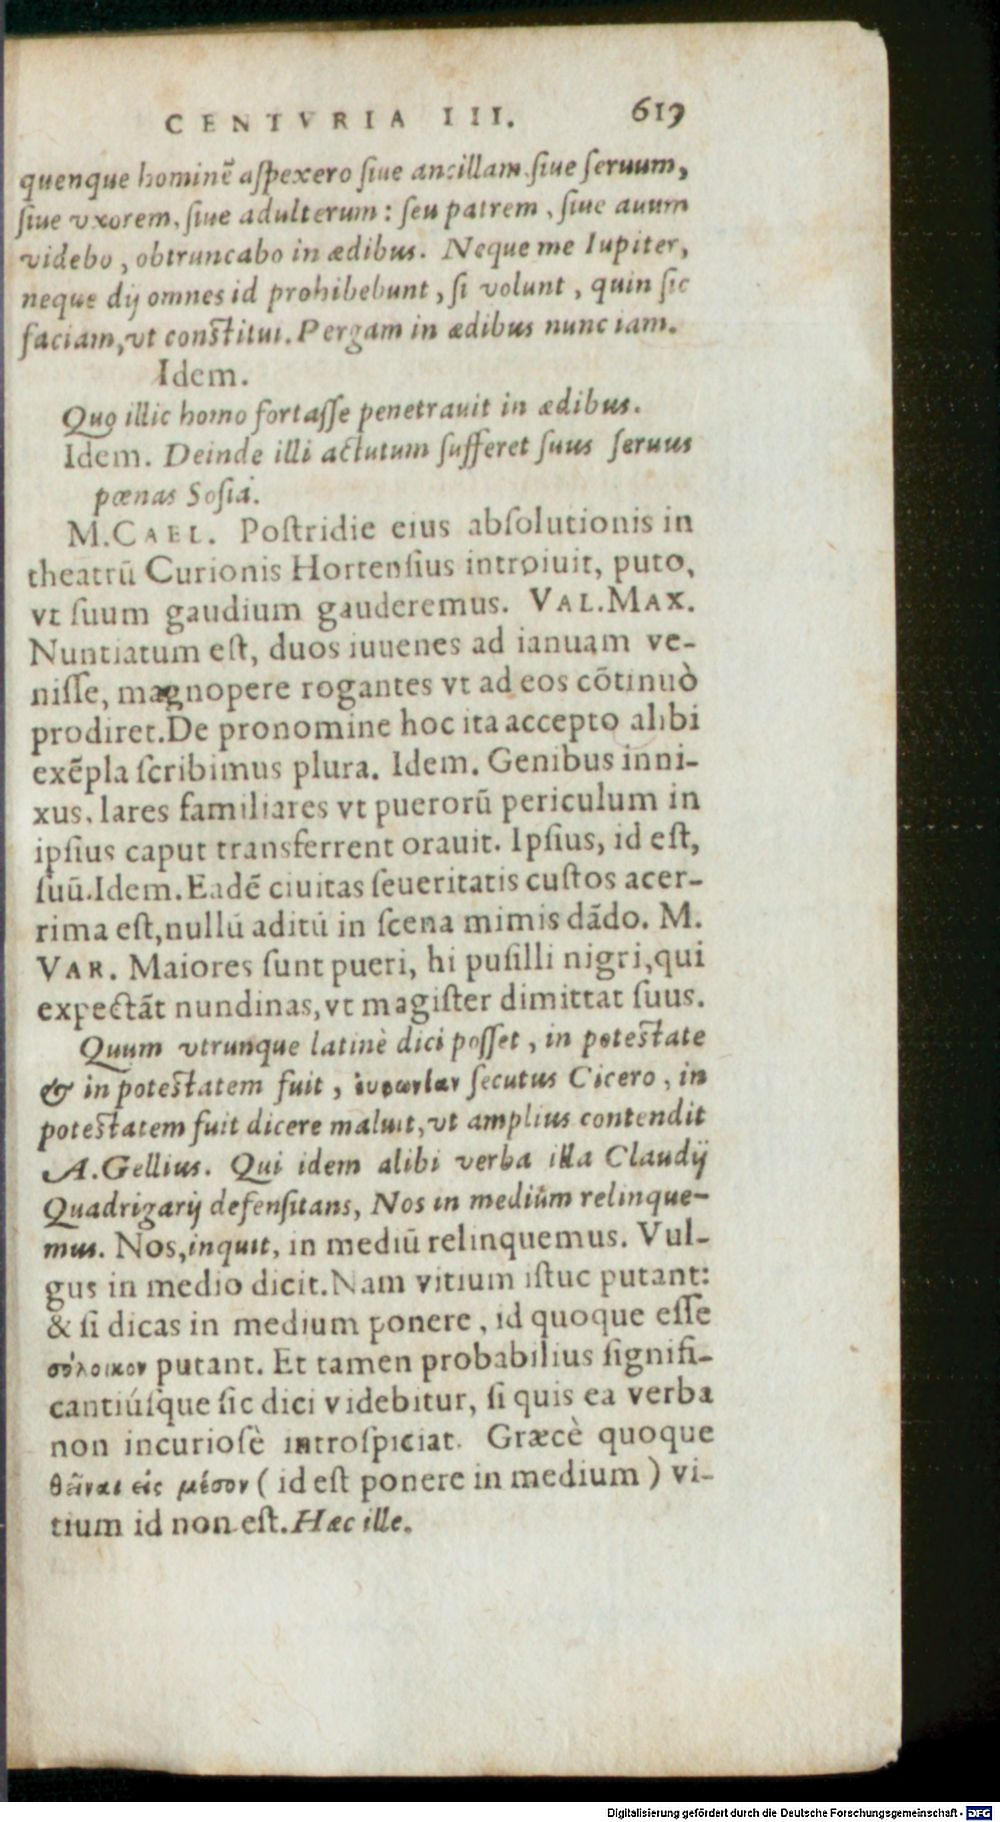 CENTVRIA III. 619
quenque hominẽ aſpexero ſiue ancillam ſiue ſeruum,
ſiue vxorem, ſiue adulterum: ſeu patrem, ſiue auum
videbo, obtruncabo in ædibus. Neque me Iupiter,
neque dij omnes id prohibebunt, ſi volunt, quin ſic
faciam, vt conſtitui. Pergam in ædibus nunc iam.
Idem.
Quo illic homo fortaſſe penetrauit in ædibus.
Idem. Deinde illi actutum ſufferet ſuus ſeruus
pœnas Soſia.
M. CAEL. Poſtridie eius abſolutionis in
theatrũ Curionis Hortenſius introiuit, puto,
vt ſuum gaudium gauderemus. VAL. MAX.
Nuntiatum eſt, duos iuuenes ad ianuam ve-
niſſe, magnopere rogantes vt ad eos cõtinuò
prodiret. De pronomine hoc ita accepto alibi
exẽpla ſcribimus plura. Idem. Genibus inni-
xus, lares familiares vt puerorũ periculum in
ipſius caput transferrent orauit. Ipſius, id eſt,
ſuũ. Idem. Eadẽ ciuitas ſeueritatis cuſtos acer-
rima eſt, nullũ aditũ in ſcena mimis dãdo. M.
VAR. Maiores ſunt pueri, hi puſilli nigri, qui
expectãt nundinas, vt magiſter dimittat ſuus.
Quum vtrunque latinè dici poſſet, in poteſtate
& in poteſtatem fuit, ſecutus Cicero, in
poteſtatem fuit dicere maluit, vt amplius contendit
A. Gellius. Qui idem alibi verba illa Claudij
Quadrigarij defenſitans, Nos in mediũm relinque-
mus. Nos, inquit, in mediũ relinquemus. Vul-
gus in medio dicit. Nam vitium iſtuc putant:
& ſi dicas in medium ponere, id quoque eſſe
σόλοικον putant. Et tamen probabilius ſignifi-
cantiúſque ſic dici videbitur, ſi quis ea verba
non incuriosè introſpiciat. Græcè quoque
θεῖναι εἰς μέσον (id eſt ponere in medium) vi-
tium id non eſt. Hæc ille.
Digitalisierung gefördert durch die Deutsche Forschungsgemeinschaft - DFG